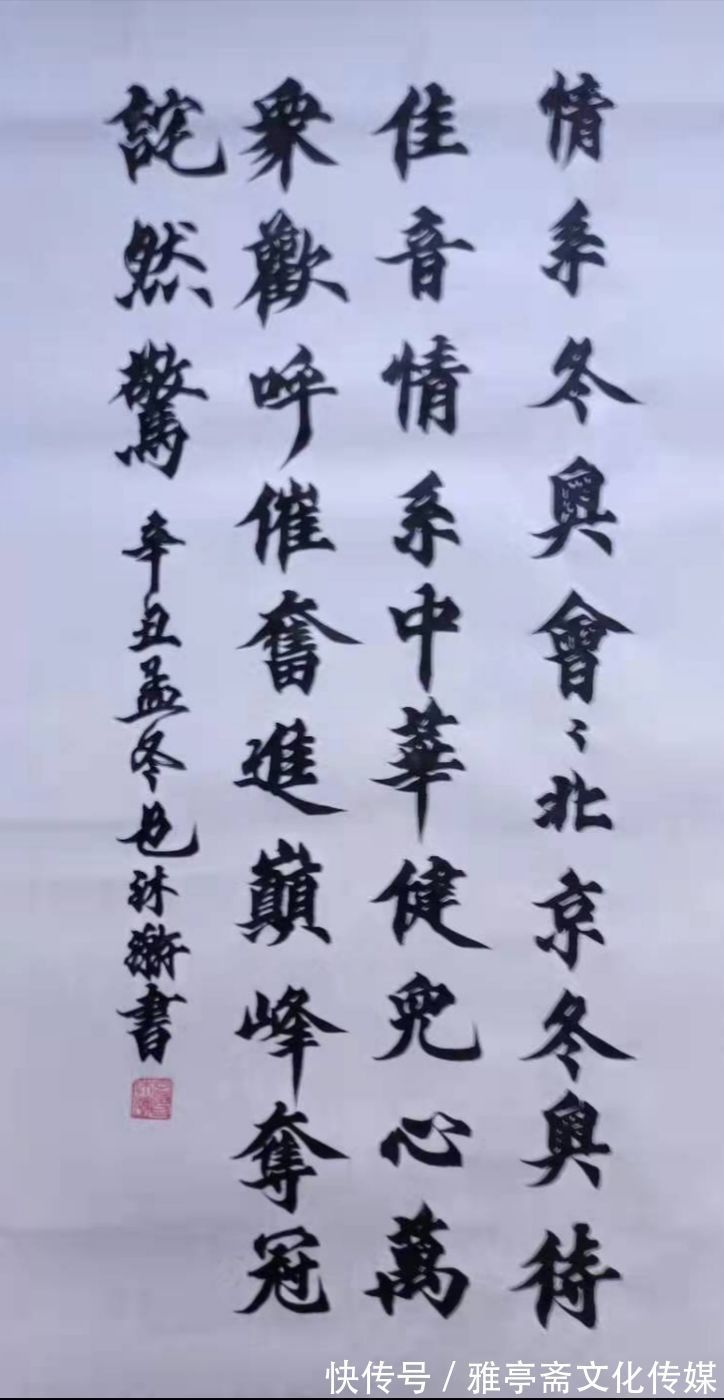 情系冬奧會〻北京冬奧待
佳音情系中華健兒心萬
衆歡呼催奮進巔峰奪冠
詫然驚 辛丑孟冬 書
快传号 / 雅亭斋文化传媒